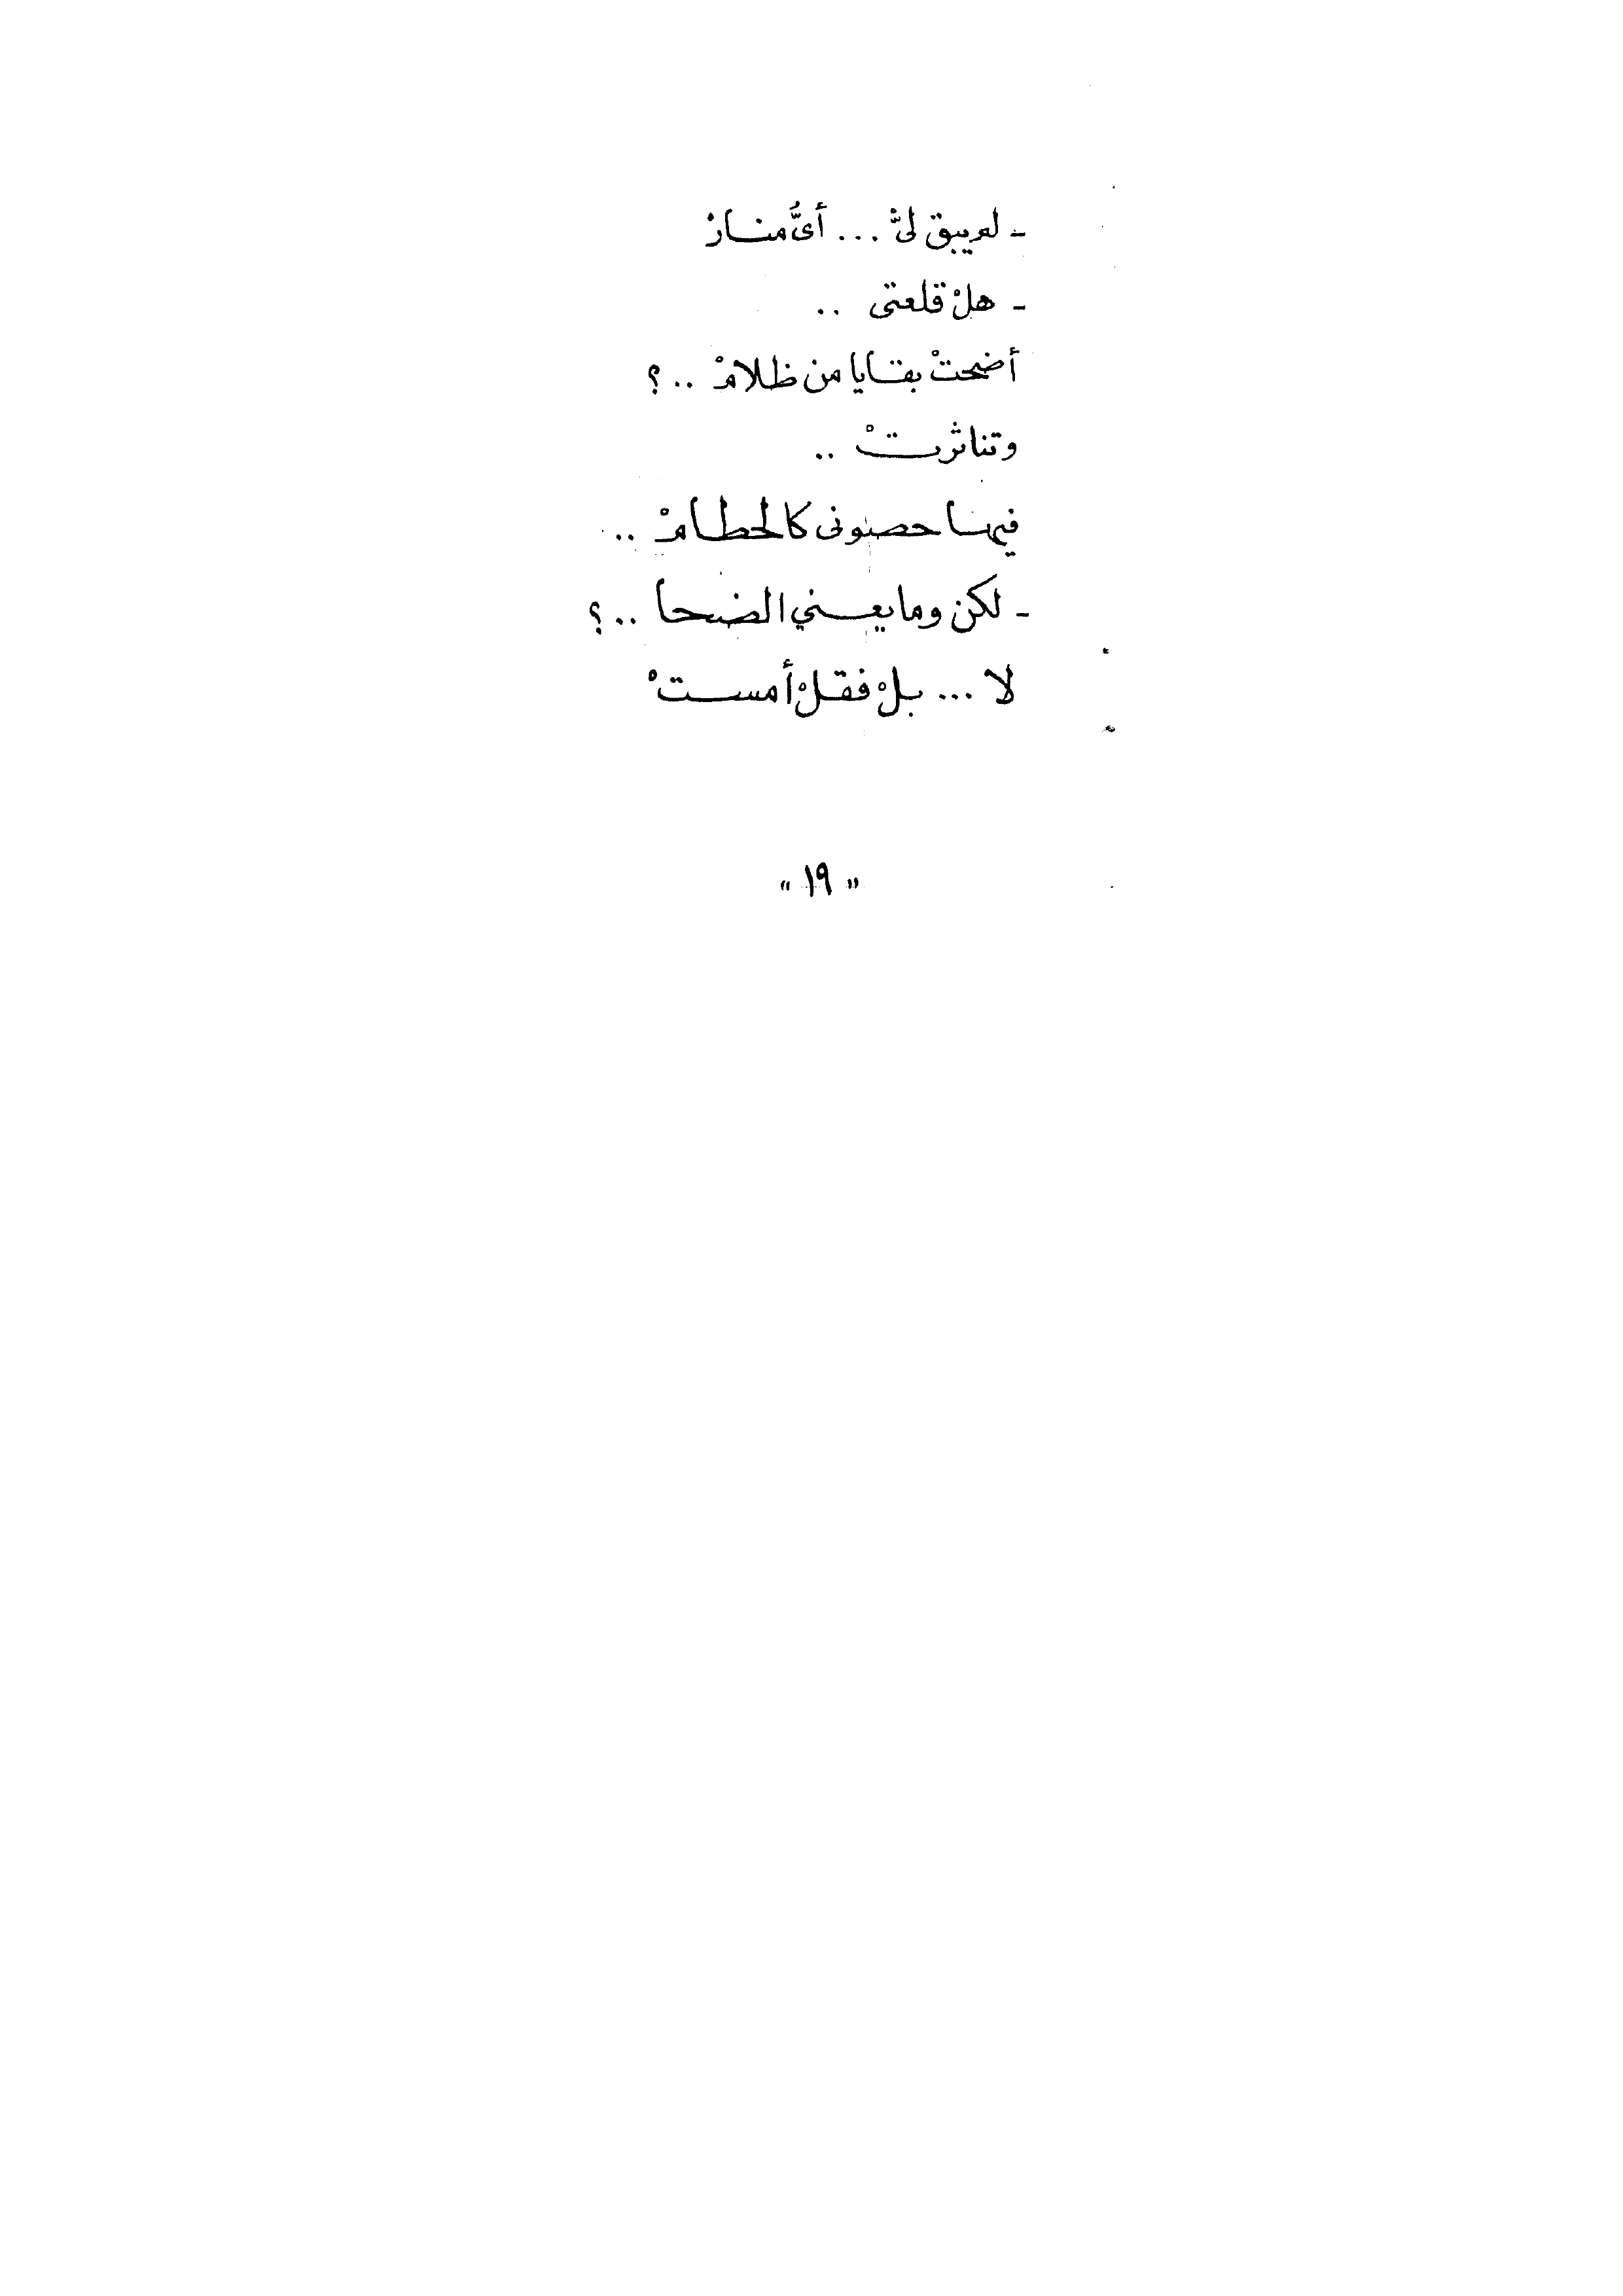 - لم يبق لىْ ... أىُّ منارْ
- هلْ قلعتى ..
أضحتْ بقايا من ظلامْ .. ؟
وتناثرتْ ..
فيها حصونى كالحطامْ ..
- لكن وما يعني الضحا .. ؟
لا ... بلْ فقلْ أمستْ
" ١٩ "